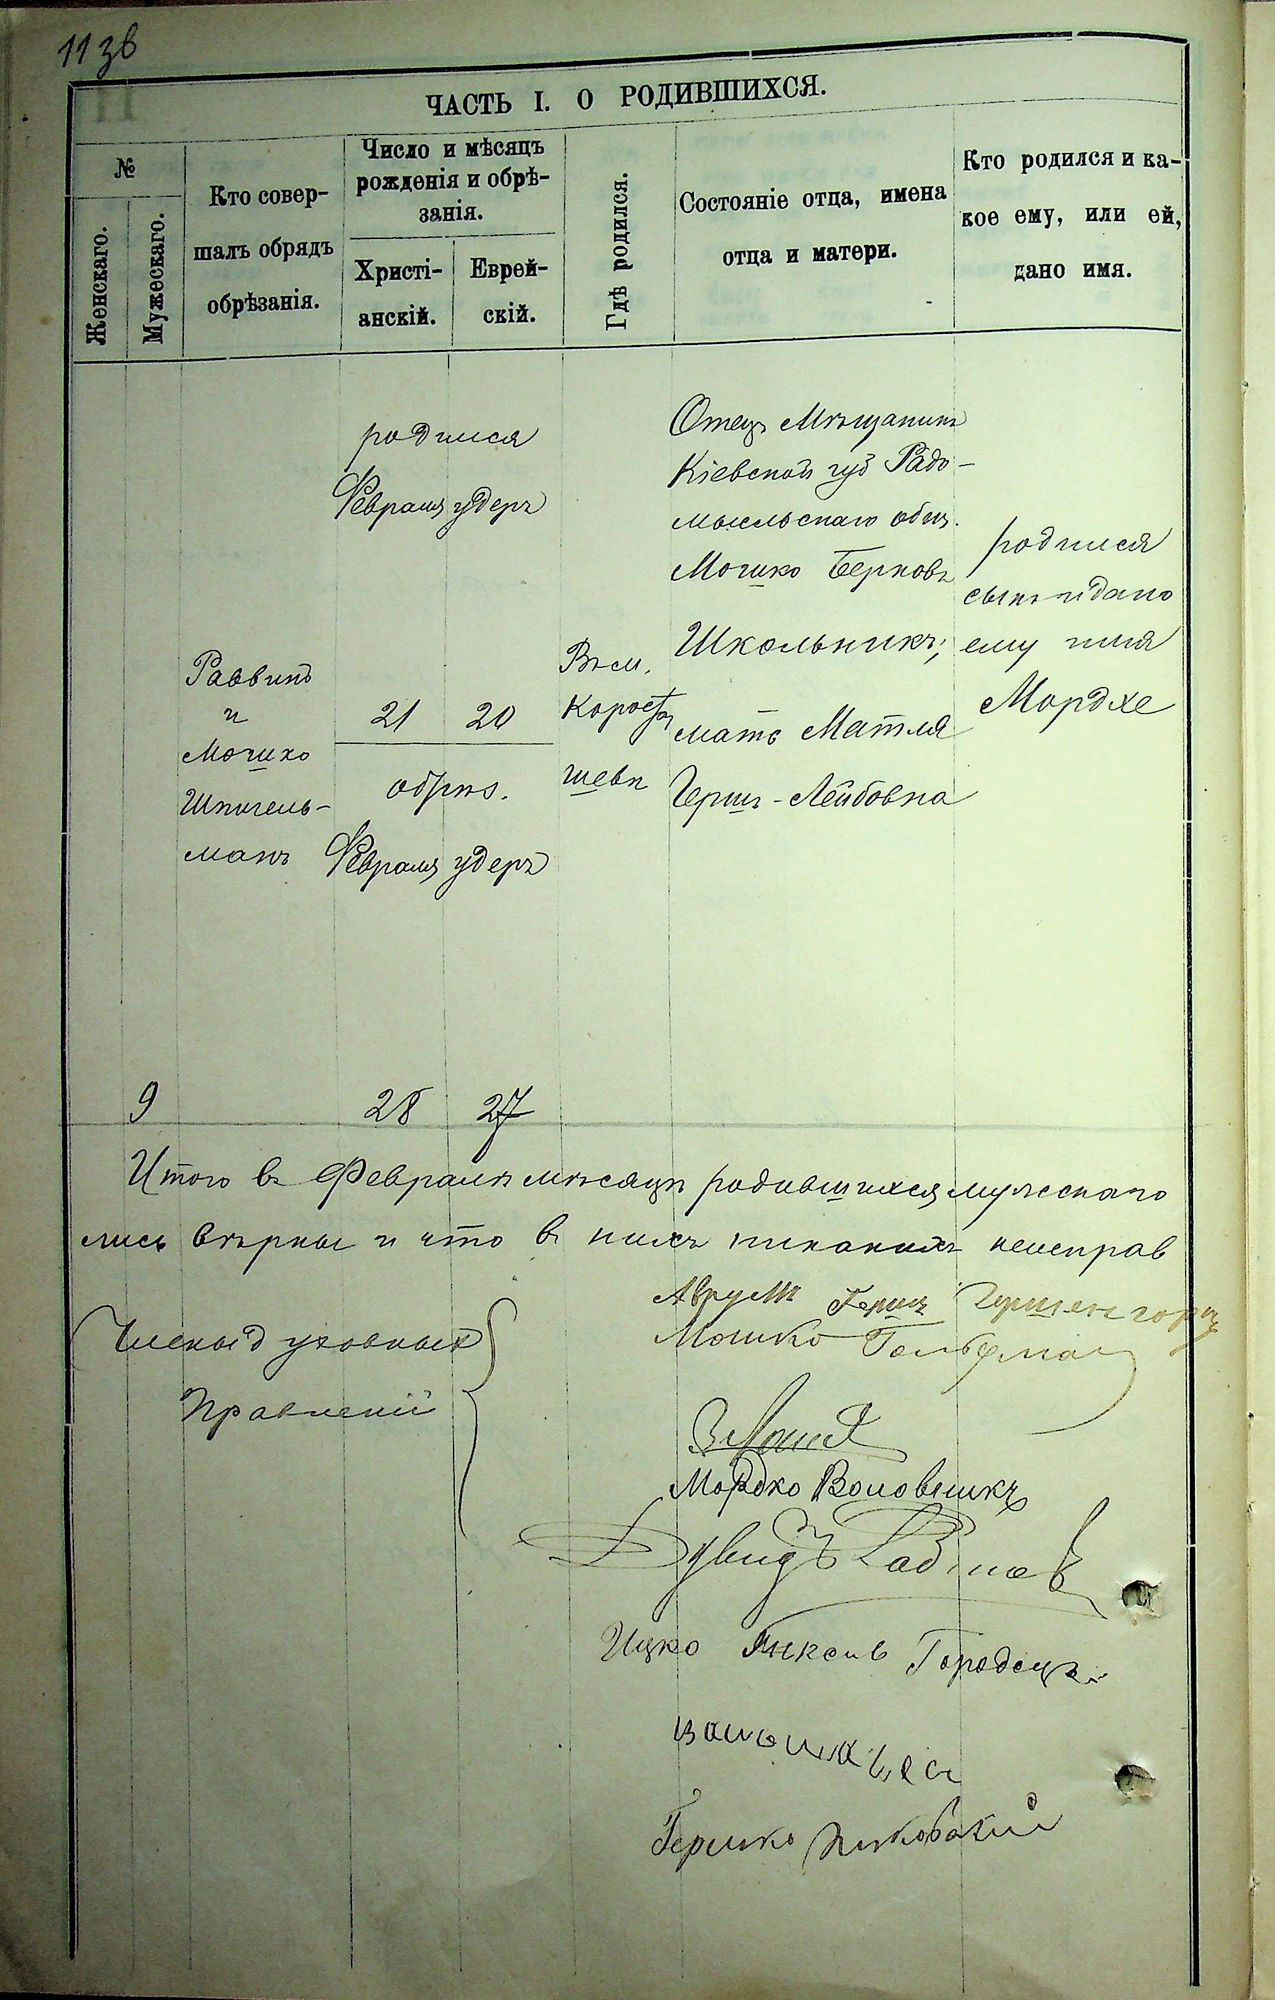 11 зв
ЧАСТЬ I. О РОДИВШИХСЯ.
№
Женскаго.
Мужескаго.
Кто совер-
шалъ обрядъ
обрѣзанія.
Число и мѣсяцъ
рожденія и обрѣ-
занія.
Христі-
анскій.
Еврей-
скій.
Гдѣ родился.
Состояніе отца, имена
отца и матери.
Кто родился и ка-
кое ему, или ей,
дано имя.
9
Раввинъ
и
Мошко
Шпигель-
манъ
родился
Февраля удеръ
21 20
обрѣз.
Февраля удеръ
28 27
Въ м.
Корост
шевѣ
Отецъ Мѣщанинъ
Кіевской губ Радо-
мысльскаго общ.
Мошко Берковъ
Школьникъ;
мать Матля
Герш-Лейбовна
родился
сынъ и дано
ему имя
Мордхе
Итого въ Февралѣ мѣсяцѣ родившихся мужескаго
лись вѣрны и что в нихъ никакихъ неисправ
Члены духовныхъ
Правленій
Аврумъ Гершъ
Мошко
Мордко Воловликъ
Дувидъ
Ицко Городецк
Гершко